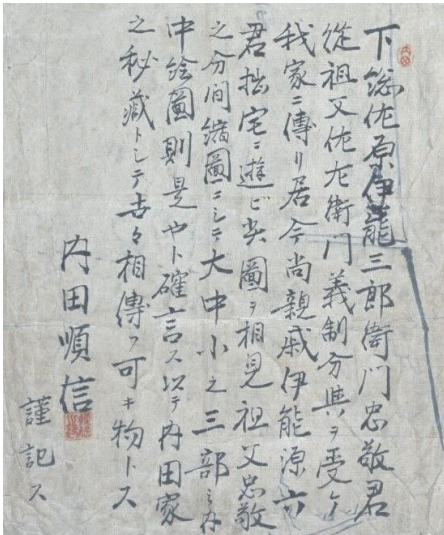 下総佐原伊能三郎衛門忠敬君
従祖父佐左衛門義制分與ヲ受ケ
我家ニ傳リ居今尚親戚伊能源六
君拙宅ニ遊ビ此圖ヲ相見祖父忠敬
之分間縮圖ニシテ大中小之三部之内
中絵圖則是ヤト確言ス以テ内田家
之秘蔵トシテ世々相傳フ可キ物トス
内田順信
謹記ス